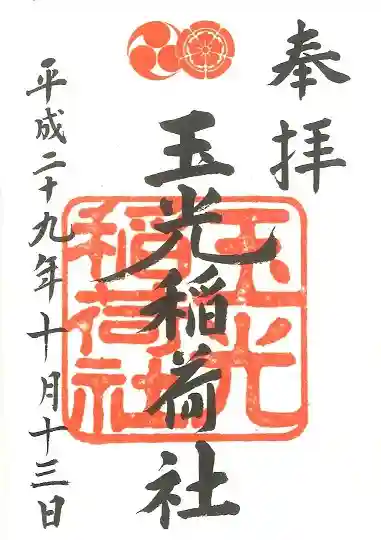 奉拝
玉光稲荷社
玉光
稲荷社
平成二十九年十月十三日